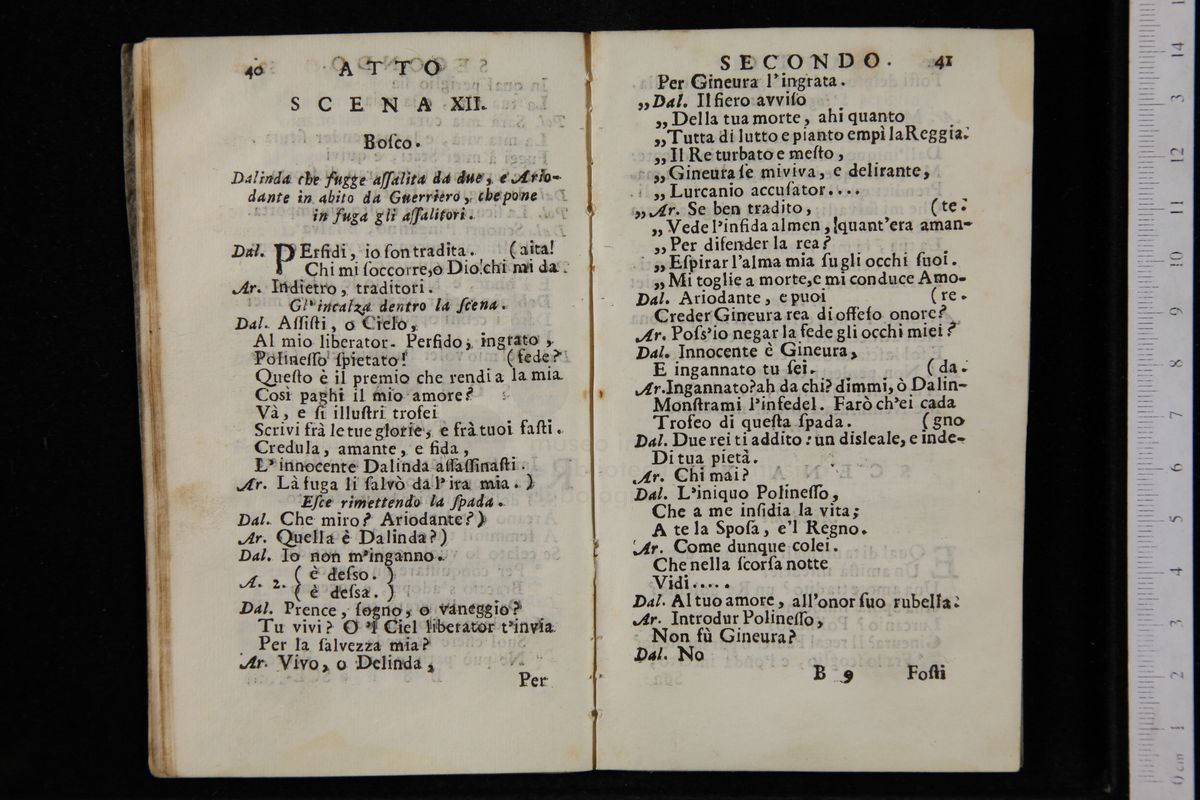 40 ATTO
SCENA XII.
Boſco.
Dalinda che fugge aſſalita da due, e Ario-
dante in abito da Guerriero, che pone
in fuga gli aſſalitori.
Dal. PErfidi, io ſon tradita. (aita!
Chi mi ſoccorre,o Dio!chi mi da
Ar. Indietro, traditori.
Gl'incalza dentro la ſcena.
Dal. Aſſiſti, o Cielo,
Al mio liberator. Perfido, ingrato,
Polineſſo ſpietato! (fede?
Queſto è il premio che rendi a la mia
Così paghi il mio amore?
Và, e ſi illuſtri trofei
Scrivi frà le tue glorie, e frà tuoi faſti.
Credula, amante, e fida,
L'innocente Dalinda aſſaſſinaſti.
Ar. Là fuga li ſalvò da l'ira mia.)
Eſce rimettendo la ſpada.
Dal. Che miro? Ariodante?)
Ar. Quella è Dalinda?)
Dal. Io non m'inganno.
A. 2. ( è deſso. )
( è deſsa. )
Dal. Prence, ſogno, o vaneggio?
Tu vivi? O 'l Ciel liberator t'invia
Per la ſalvezza mia?
Ar. Vivo, o Delinda,
Per
SECONDO. 41
Per Gineura l'ingrata.
„Dal. Il fiero avviſo
„Della tua morte, ahi quanto
„Tutta di lutto e pianto empì la Reggia.
„Il Re turbato e meſto,
„Gineura ſe miviva, e delirante,
„Lurcanio accuſator....
„Ar. Se ben tradito, (te.
„Vede l'infida almen, quant'era aman-
„Per difender la rea?
„Eſpirar l'alma mia ſu gli occhi ſuoi.
„Mi toglie a morte,e mi conduce Amo-
Dal. Ariodante, e puoi (re.
Creder Gineura rea di offeſo onore?
Ar. Poſs'io negar la fede gli occhi miei?
Dal. Innocente è Gineura,
E ingannato tu ſei. (da.
Ar.Ingannato?ah da chi? dimmi, ò Dalin-
Monſtrami l'infedel. Farò ch'ei cada
Trofeo di queſta ſpada. (gno
Dal. Due rei ti addito: un disleale, e inde-
Di tua pietà.
Ar. Chi mai?
Dal. L'iniquo Polineſſo,
Che a me inſidia la vita;
A te la Spoſa, e'l Regno.
Ar. Come dunque colei.
Che nella ſcorſa notte
Vidi.....
Dal. Al tuo amore, all'onor ſuo rubella.
Ar. Introdur Polineſſo,
Non fù Gineura?
Dal. No
B 9 Foſti